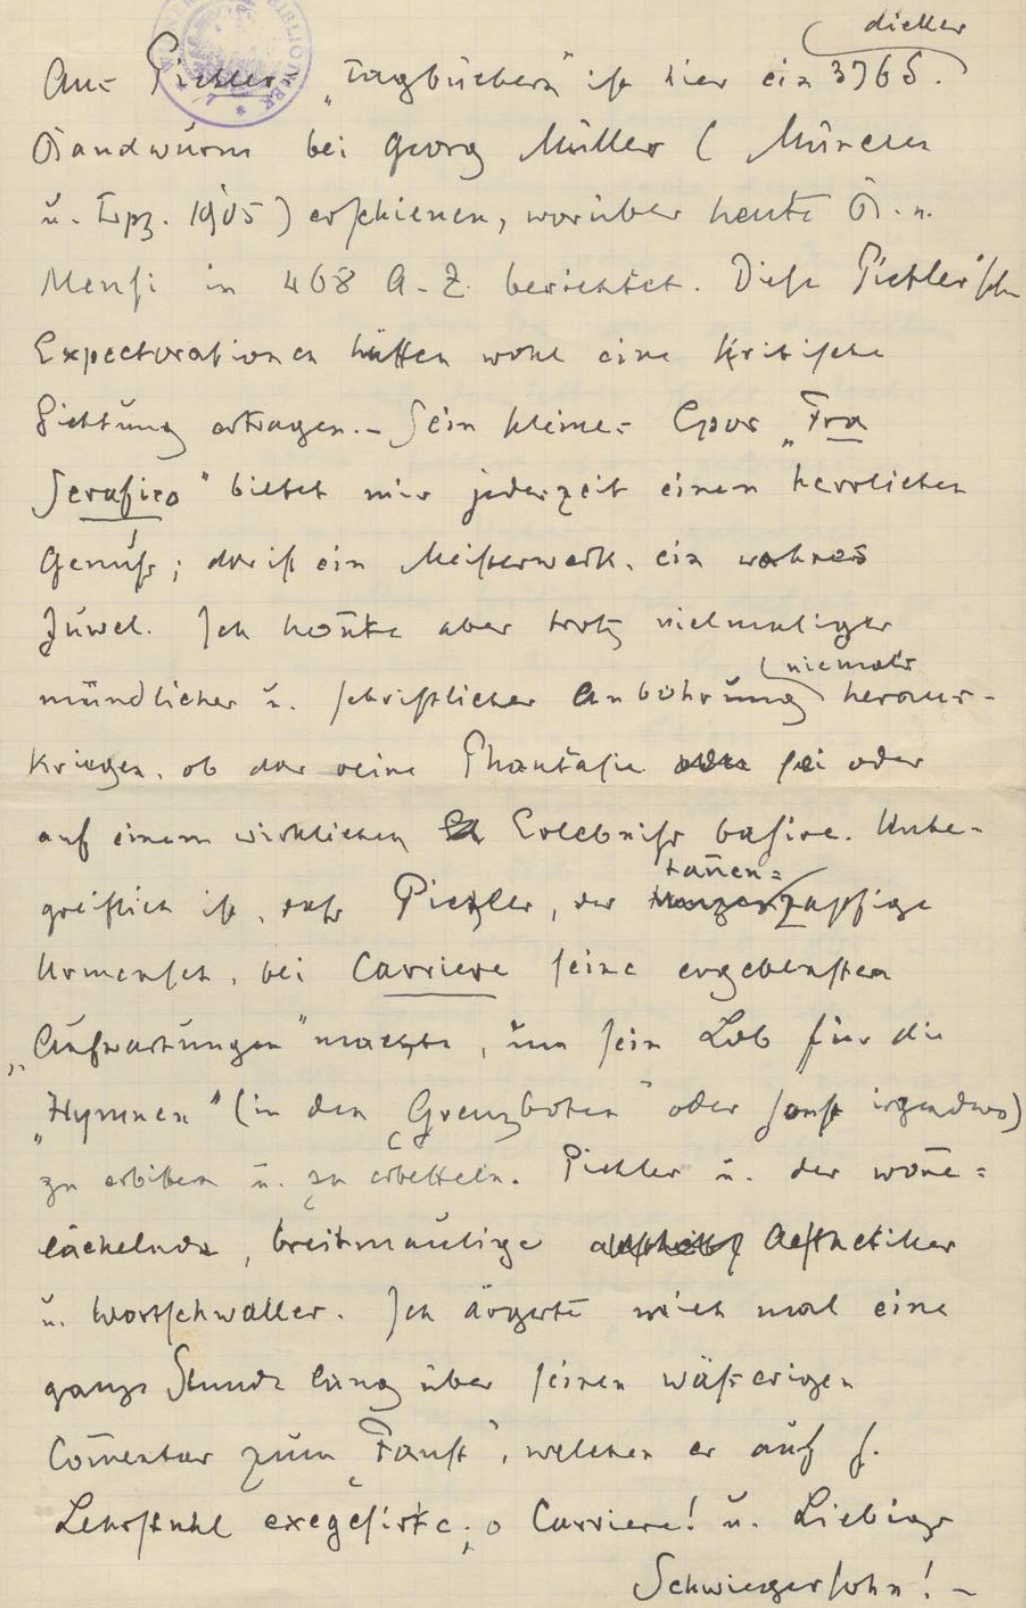 dicker
Aus Pichlers „Tagbüchern" ist hier ein 376 S.
Bandwurm bei Georg Müller (München
u. Lpz. 1905) erschienen, worüber heute B. v.
Mensi in 468 A. Z. berichtet. Diese Pichler'schen
Expectorationen hätten wohl eine kritische
Sichtung ertragen. – Sein kleines Epos „Fra
Serafico" bietet mir jederzeit einen herrlichen
Genuß; das ist ein Meisterwerk, ein wahres
Juwel. Ich kon̄te aber trotz vielmaliger
niemals
mündlicher u. schriftlicher Anbohrung heraus-
kriegen, ob das reine Phantasie sei oder
auf einem wirklichen Erlebniß basire. Unbe-
tan̄en=
greiflich ist, daß Pichler, der zapfige
Urmensch, bei Carriere seine ergebensten
„Aufwartungen" machte, um sein Lob für die
„Hymnen" (in den „Grenzboten" oder sonst irgendwo)
zu erbitten u. zu erbetteln. Pichler u. der won̄e=
lächelnde, breitmaulige Aesthetiker
u. Wortschwaller. Ich ärgerte mich mal eine
ganze Stunde lang über seinen wäßerigen
Com̄entar zum „Faust", welchen er auf s.
Lehrstuhl exegesirte; o Carriere! u. Liebigs
Schwiegersohn! –